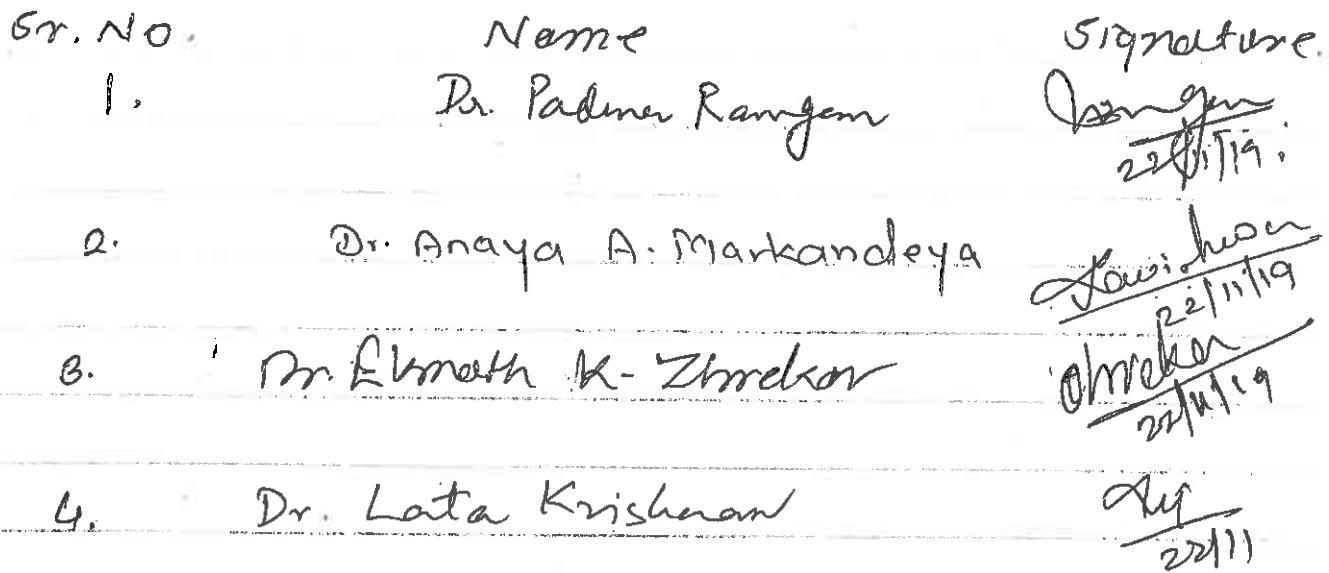 Sr. No. Name Signature
1. Dr. Padma Rangan
22/11/19.
2. Dr. Anaya A. Markandeya
22/11/19
3. Dr. Eknath K-
22/11/19
4. Dr. Lata Krishnan
22/11